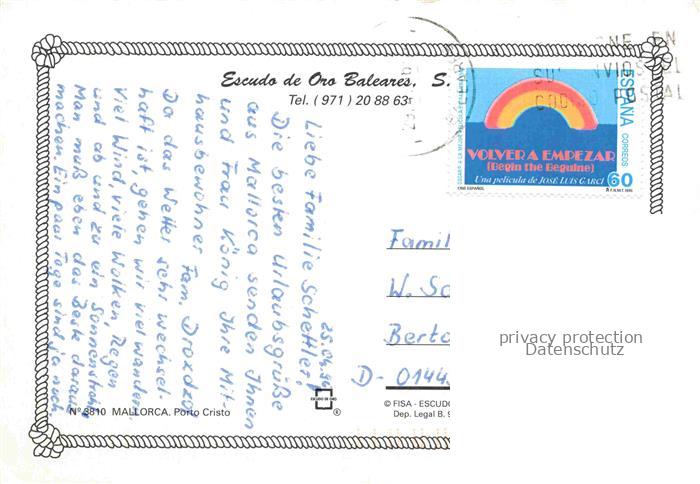 Escudo de Oro Baleares, S.
Tel. (971) 20 88 63
25.04.96
Liebe Familie Schettler,
Die besten Urlaubsgrüße
aus Mallorca senden Ihnen
und Frau König Ihre Mit-
hausbewohner
Fam. Droxdzo
Da das Wetter sehr wechsel-
haft ist, gehen wir viel wandern.
Viel Wind, viele Wolken, Regen
und ab und zu ein Sonnenstrahl
Man muß eben das Beste daraus
machen. Ein paar Tage sind ja noch.
Nº 3810 MALLORCA. Porto Cristo
ESPAÑA
CORREOS
VOLVER A EMPEZAR
(Begin the Beguine)
Una película de JOSÉ LUIS GARCI
60
CINE ESPAÑOL
Famil
W. Sc
Berto
D- 0144
privacy protection
Datenschutz
®
© FISA - ESCUDO
Dep. Legal B. 9